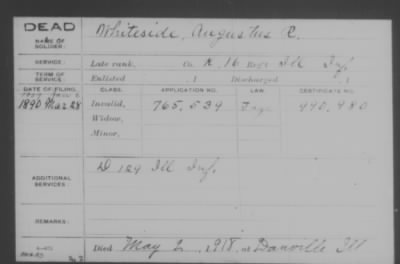 DEAD
NAME OF SOLDIER: Whiteside, Augustus C.
SERVICE: Late rank, Co. K, 16 Reg't Ill Inf.
TERM OF SERVICE: Enlisted , 1 Discharged , 1
DATE OF FILING. CLASS. APPLICATION NO. LAW. CERTIFICATE NO.
1890 Mar 28 Invalid, 765,539 440,480
Widow,
Minor,
ADDITIONAL SERVICES: D 129 Ill Inf.
REMARKS:
Died May 2, 1918, at Danville Ill